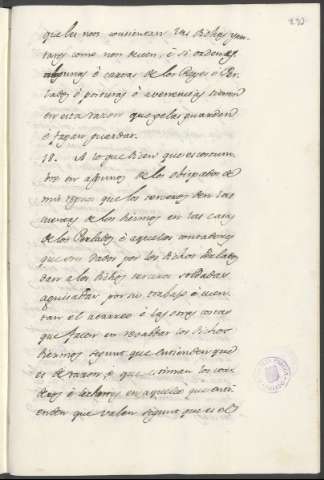 que les non consientan las dichas yan
tares como non deven, é si ordenas
algunas ó cartas de los Reyes ó Per
lados ó posturas ó avenencias tienen
en esta razon que gelas guarden
é fagan guardar.
18. A lo que dicen que es costum
bre en algunos de los obispados de
mis regnos que los terceros den las
cuentas de los diezmos en las casas
de los Perlados é aquellos contadores
que son dados por los dichos Perlados
dan a los dichos terceros soldadas
aguisadas por su trabajo é cuen
tan el acarreo é las otras cosas
que facen en recabdar los dichos
diezmos segunt que entienden que
es de razon, é que estiman los corde
ros é lechones en aquello que enti
enden que valen segunt que es el